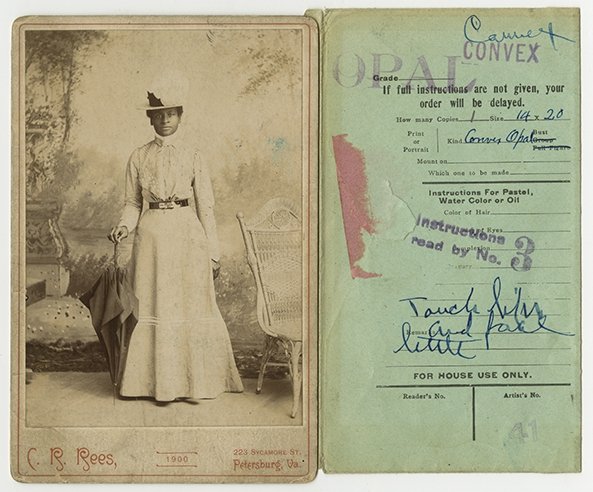 C. R. Rees,
1900
223 Sycamore St.
Petersburg, Va.
Convex
CONVEX
OPAL
Grade
If full instructions are not given, your
order will be delayed.
How many Copies 1 Size 14 x 20
Print
or
Portrait
Kind Convex Opal
Bust
Group
Full Figure
Mount on
Which one to be made
Instructions For Pastel,
Water Color or Oil
Color of Hair
of Eyes
Instructions
read by No. 3
Remarks
Touch
and face
little
FOR HOUSE USE ONLY.
Reader's No. Artist's No.
41